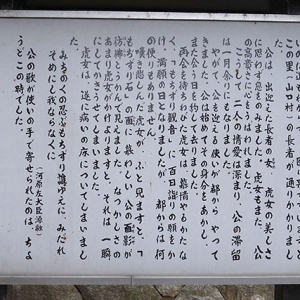 この里（山口村）の長者が通りかかりました。
公は、出迎えた長者の女、虎女の美しさ
に思わず息をのみました。虎女もまた、公
の高貴さに心をうばわれました。
こうして二人の情愛は深まり、公の滞留
は一月余りにもなりました。
やがて、公を迎える使いが都からやって
きました。公は始めてその身分をあかし、
また会う日を約して去りました。
再会を待ちわびた虎女は、慕情やるかたな
く「もちずり観音」に百日詣りの願をか
け、満願の日となりましたが、都からは何
の便りもありません。
嘆き悲しんだ虎女が、ふと見ますと、「も
ちずり石」の面に、慕わしい公の面影が
彷彿とうかんで見えました。なつかしさの
あまり虎女がかけよりますと、それは一瞬
にしてかきうせてしまいました。
虎女は、遂に病の床についてしまいまし
た。
みちのくの忍ぶもちずり誰ゆえに、みだれ
そめにし我ならなくに
（河原左大臣源融）
公の歌が使いの手で寄せられたのは、ちょ
うどこの時でした。